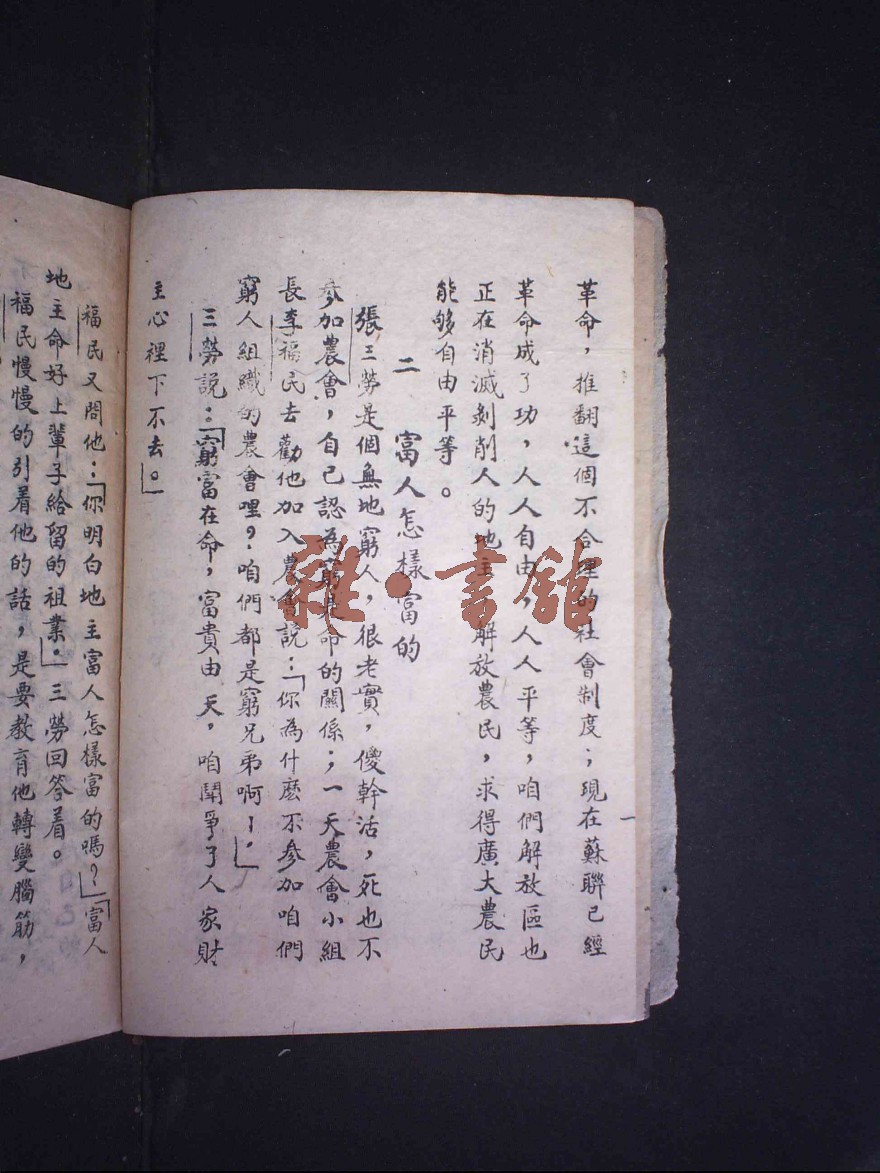 革命，推翻這個不合理的社會制度；現在蘇聯已經
革命成了功，人人自由，人人平等，咱們解放區也
正在消滅剝削人的地主，解放農民，求得廣大農民
能够自由平等。
二　富人怎樣富的
張三勞是個無地窮人，很老實，傻幹活，死也不
參加農會，自己認為窮是命的關係；一天農會小組
長李福民去勸他加入農會說：「你為什麼不參加咱們
窮人組織的農會哩？咱們都是窮兄弟啊！」
三勞說：「窮富在命，富貴由天，咱鬪爭了人家財
主心裡下不去。」
福民又問他：「你明白地主富人怎樣富的嗎？」「富人
地主命好上輩子給留的祖業。」三勞回答着。
福民慢慢的引着他的話，是要教育他轉變腦筋，
一
雜·書館